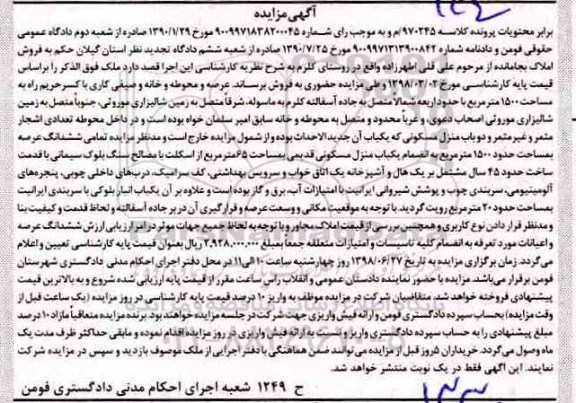 آگهی مزایده
برابر محتویات پرونده کلاسه ۹۷۰۲۴۵/م و به موجب رای شماره ۹۰۰۹۹۷۱۸۳۸۲۰۰۰۴۵ مورخ ۱۳۹۰/۱/۲۹ صادره از شعبه دوم دادگاه عمومی
حقوقی فومن و دادنامه شماره ۹۰۰۹۹۷۱۳۱۳۹۰۰۸۴۲ مورخ ۱۳۹۰/۷/۲۵ صادره از شعبه ششم دادگاه تجدید نظر استان گیلان حکم به فروش
املاک بجامانده از مرحوم علی قلی اطهرزاده واقع در روستای کلرم به شرح نظریه کارشناسی این اجرا قصد دارد ملک فوق الذکر را براساس
قیمت پایه کارشناسی مورخ ۱۳۹۸/۰۳/۰۲ و طی مزایده حضوری به فروش برساند. عرصه و محوطه و خانه و صیفی کاری با کسر حریم راه به
مساحت ۱۵۰۰ متر مربع با حدود اربعه شمالاً متصل به جاده آسفالته کلرم به ماسوله، شرقاً متصل به زمین شالیزاری موروثی، جنوباً متصل به زمین
شالیزاری موروثی اصحاب دعوی، و غرباً محدود و متصل به محوطه و خانه سابق امیر سلمان خواه بوده است و در داخل محوطه تعدادی اشجار
مثمر و غیر مثمر و دو باب منزل مسکونی که یکباب آن جدید الاحداث بوده و از شمول مزایده خارج است و مدنظر مزایده تمامی ششدانگ عرصه
بمساحت حدود ۱۵۰۰ متر مربع به انضمام یکباب منزل مسکونی قدیمی بمساحت ۶۵ متر مربع از اسکلت با مصالح سنگ بلوک سیمانی با قدمت
ساخت حدود ۴۵ سال مشتمل بر یک هال و آشپزخانه یک اتاق خواب و سرویس بهداشتی، کف سرامیک، درب‌های داخلی چوبی، پنجره‌های
آلومینیومی، سربندی چوب و پوشش شیروانی ایرانیت با امتیازات آب، برق و گاز بوده است و علاوه بر آن یکباب انبار بلوکی با سربندی ایرانیت
بمساحت حدود ۲۰ متر مربع رویت گردید. با توجه به موقعیت مکانی و وسعت عرصه و قرارگیری آن در بر جاده آسفالته و لحاظ قدمت و کیفیت بنا
و مدنظر قرار دادن نوع کاربری و همچنین بررسی از قیمت املاک مجاور و با توجه به لحاظ نمودن جمیع جهات موثر در امر ارزیابی ارزش ششدانگ عرصه
و اعیانات مورد تعرفه به انضمام کلیه تاسیسات و امتیازات متعلقه جمعاً بمبلغ ۲,۹۲۸,۰۰۰,۰۰۰ ریال بعنوان قیمت پایه کارشناسی تعیین و اعلام
می‌گردد. زمان برگزاری مزایده به تاریخ ۱۳۹۸/۰۶/۲۷ روز چهارشنبه ساعت ۱۰ الی ۱۱ در محل دفتر اجرای احکام مدنی دادگستری شهرستان
فومن برقرار می‌باشد. مزایده با حضور نماینده دادستان عمومی و انقلاب راس ساعت مقرر از قیمت پایه ارزیابی شده شروع و به بالاترین قیمت
پیشنهادی فروخته خواهد شد. متقاضیان شرکت در مزایده موظف به واریز ۱۰ درصد قیمت پایه کارشناسی در روز مزایده (یک ساعت قبل از
وقت مزایده) بحساب سپرده دادگستری فومن و ارائه فیش واریزی جهت شرکت در جلسه مزایده خواهند بود. برنده مزایده متعاقباً مازاد ۱۰ درصد
مبلغ پیشنهادی را به حساب سپرده دادگستری واریز و نسبت به ارائه فیش واریزی در روز مزایده اقدام نموده و مابقی حداکثر ظرف مدت یک
ماه وصول می‌گردد. خریداران ۵ روز قبل از مزایده می‌توانند ضمن هماهنگی با دفتر اجرایی از ملک موصوف بازدید و سپس در مزایده شرکت
نمایند. این آگهی فقط در یک نوبت منتشر خواهد شد.
ح ۱۲۴۹ شعبه اجرای احکام مدنی دادگستری فومن